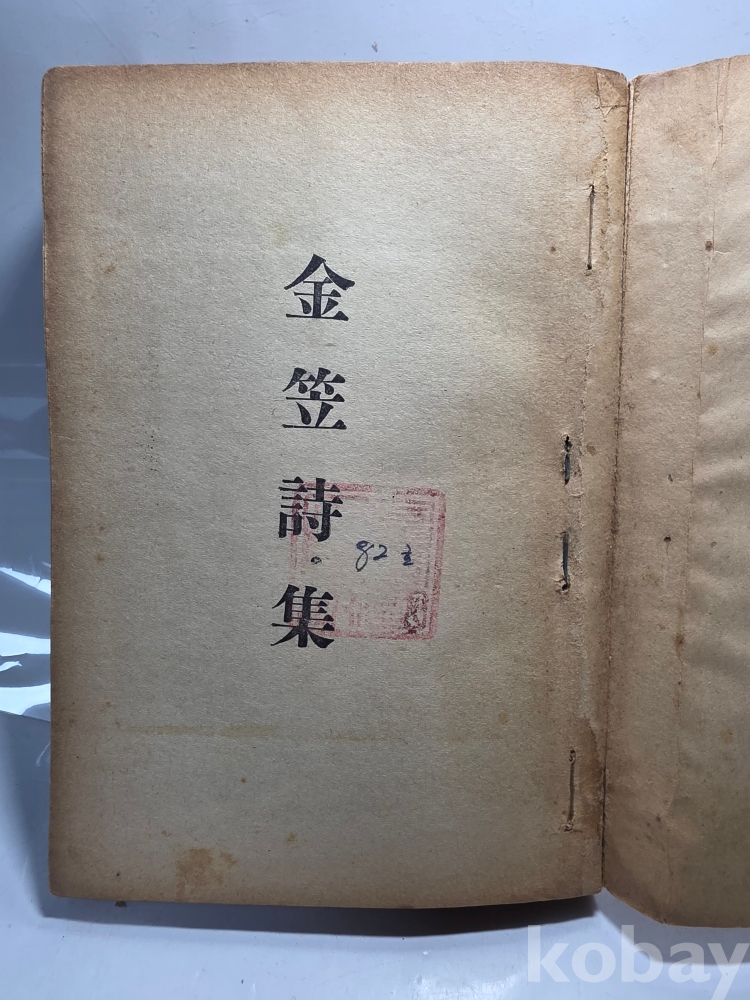 金笠詩集
82
kobay